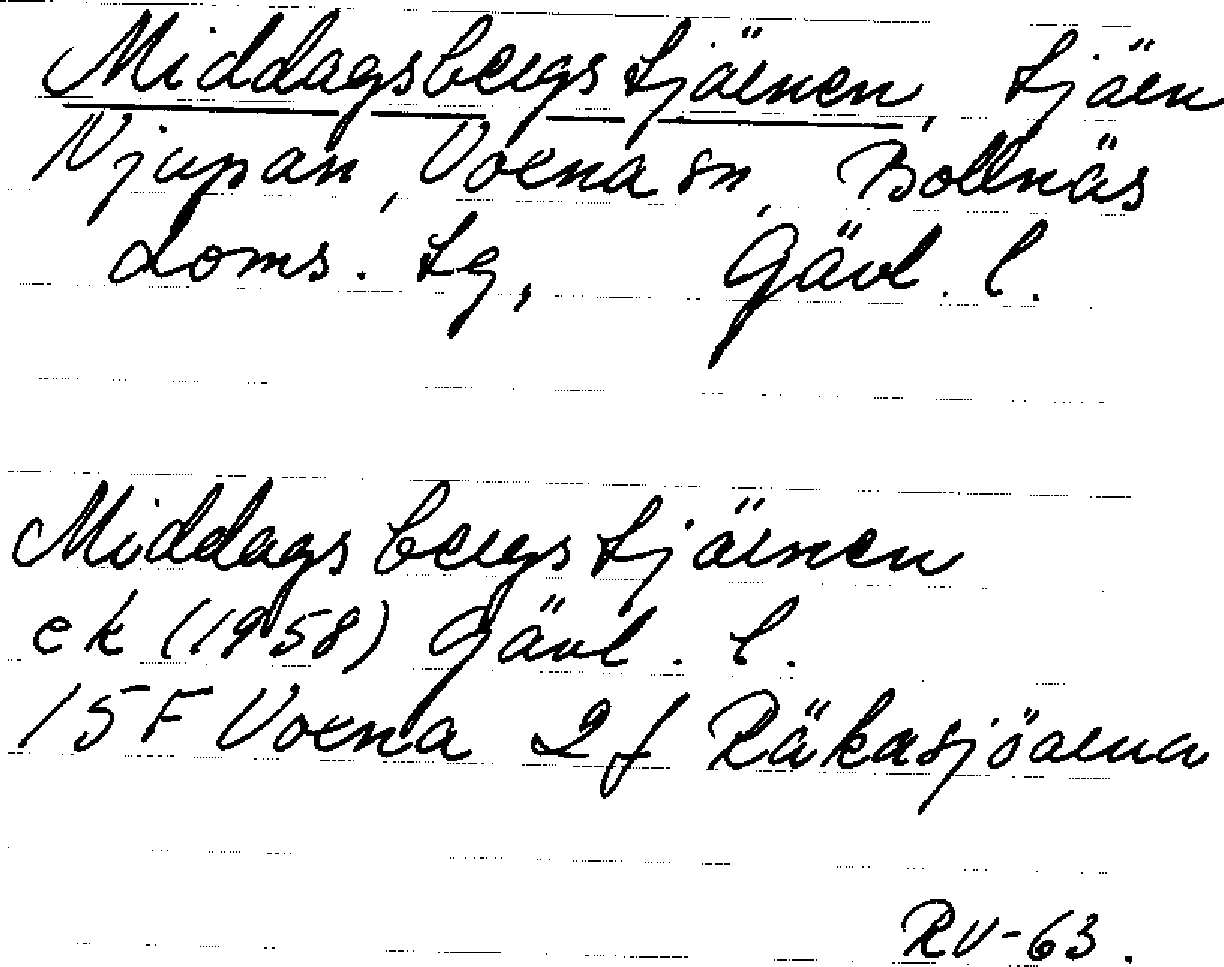 Middagsbergstjärnen, tjärn
Njupan, Voxna sn, Bollnäs
doms. tg, Gävl. l.
Middagsbergstjärnen
ek (1958) Gävl. l.
15F Voxna 2f Räkasjöarna
RV-63.